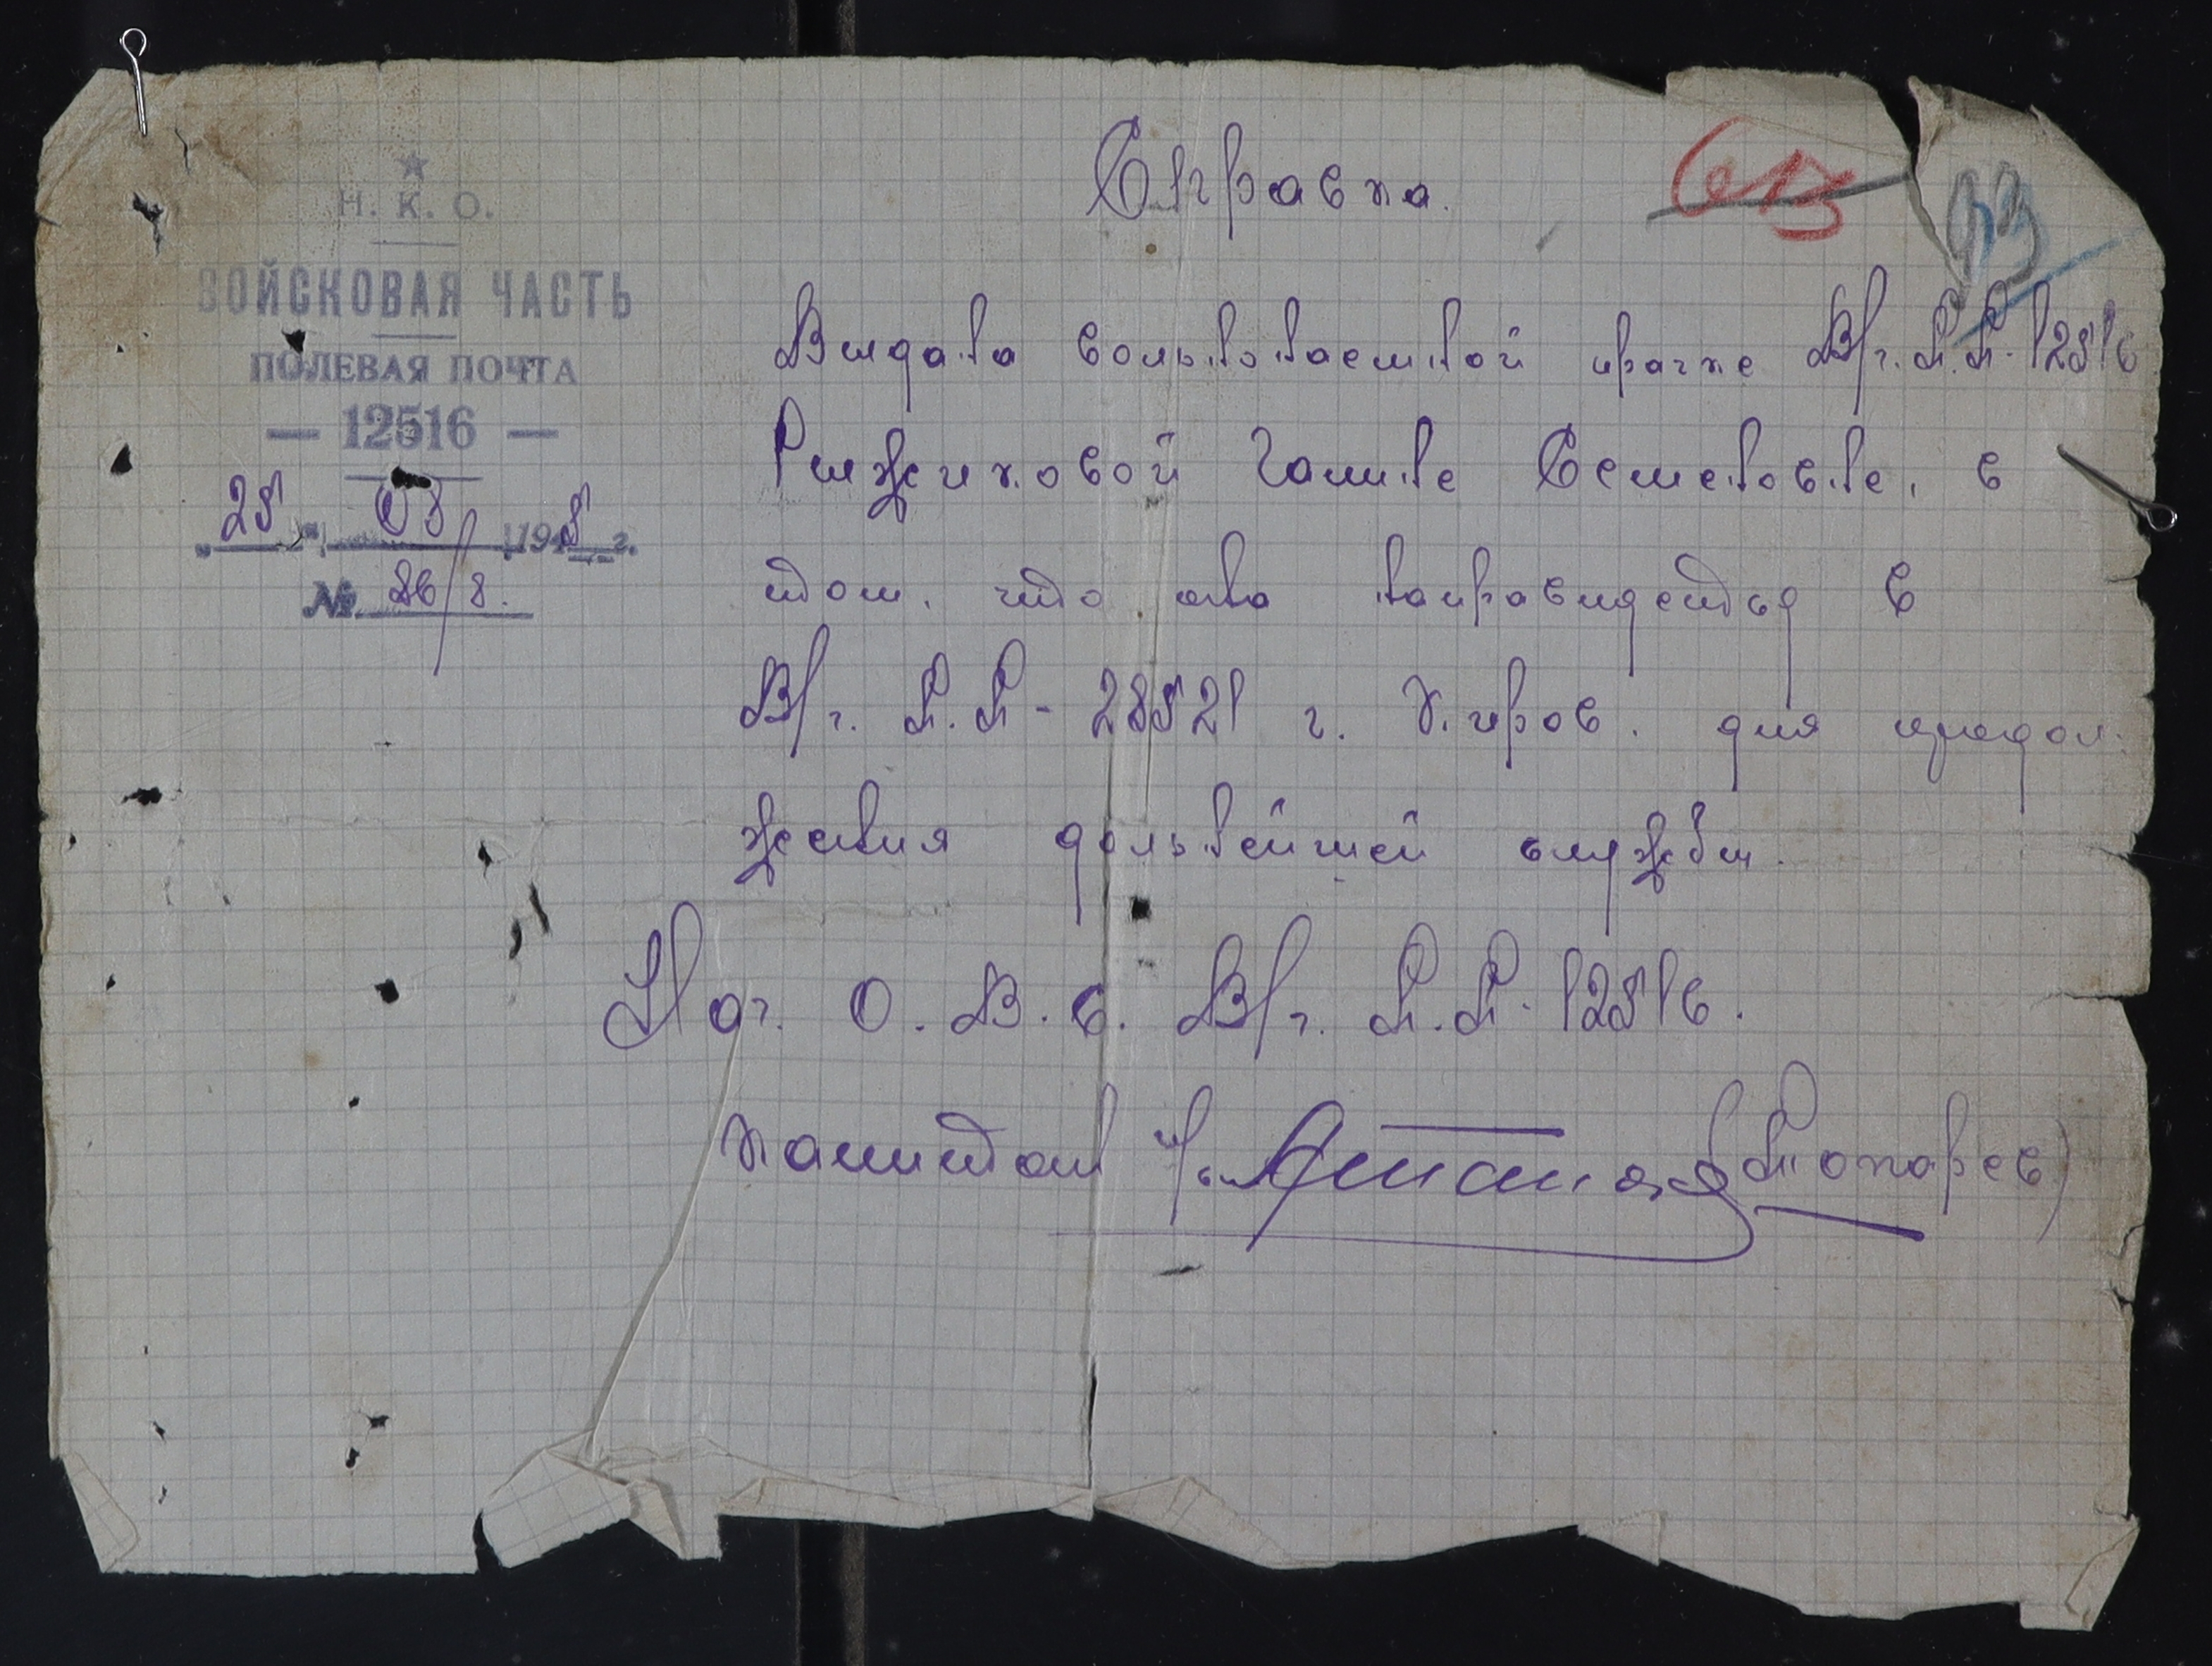 Справка.
613
93
Н. К. О.
ВОЙСКОВАЯ ЧАСТЬ
ПОЛЕВАЯ ПОЧТА
— 12516 —
„25“ 05 1945 г.
№ 86/8.
Выдана вольнонаемной прачке В/ч. П.П. 12516
Рыжиковой Галине Семеновне, в
том, что она направляеться в
В/ч. П.П - 28521 г. Киров. для продол-
жения дальнейшей службы.
Нач. О. В. С. В/ч. П.П. 12516.
капитан (Токарев)